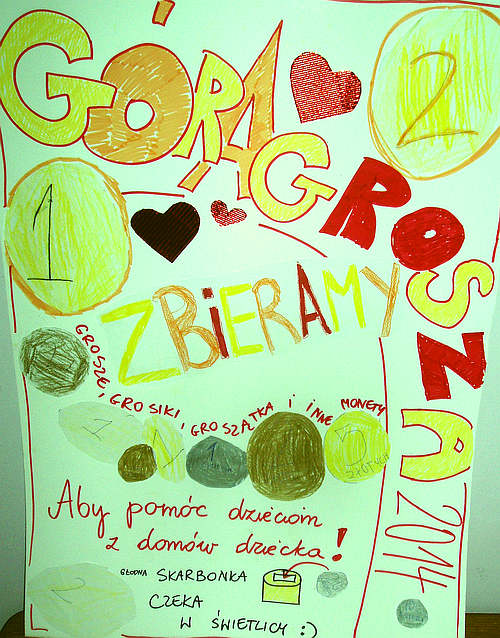 GÓRA
GROSZA
2014
2
1
ZBIERAMY
GROSZE, GROSIKI, GROSZĄTKA I INNE MONETY
1
1
1
2
ZŁOTYCH
Aby pomóc dzieciom
z domów dziecka!
GŁODNA SKARBONKA
CZEKA
W ŚWIETLICY :)
2